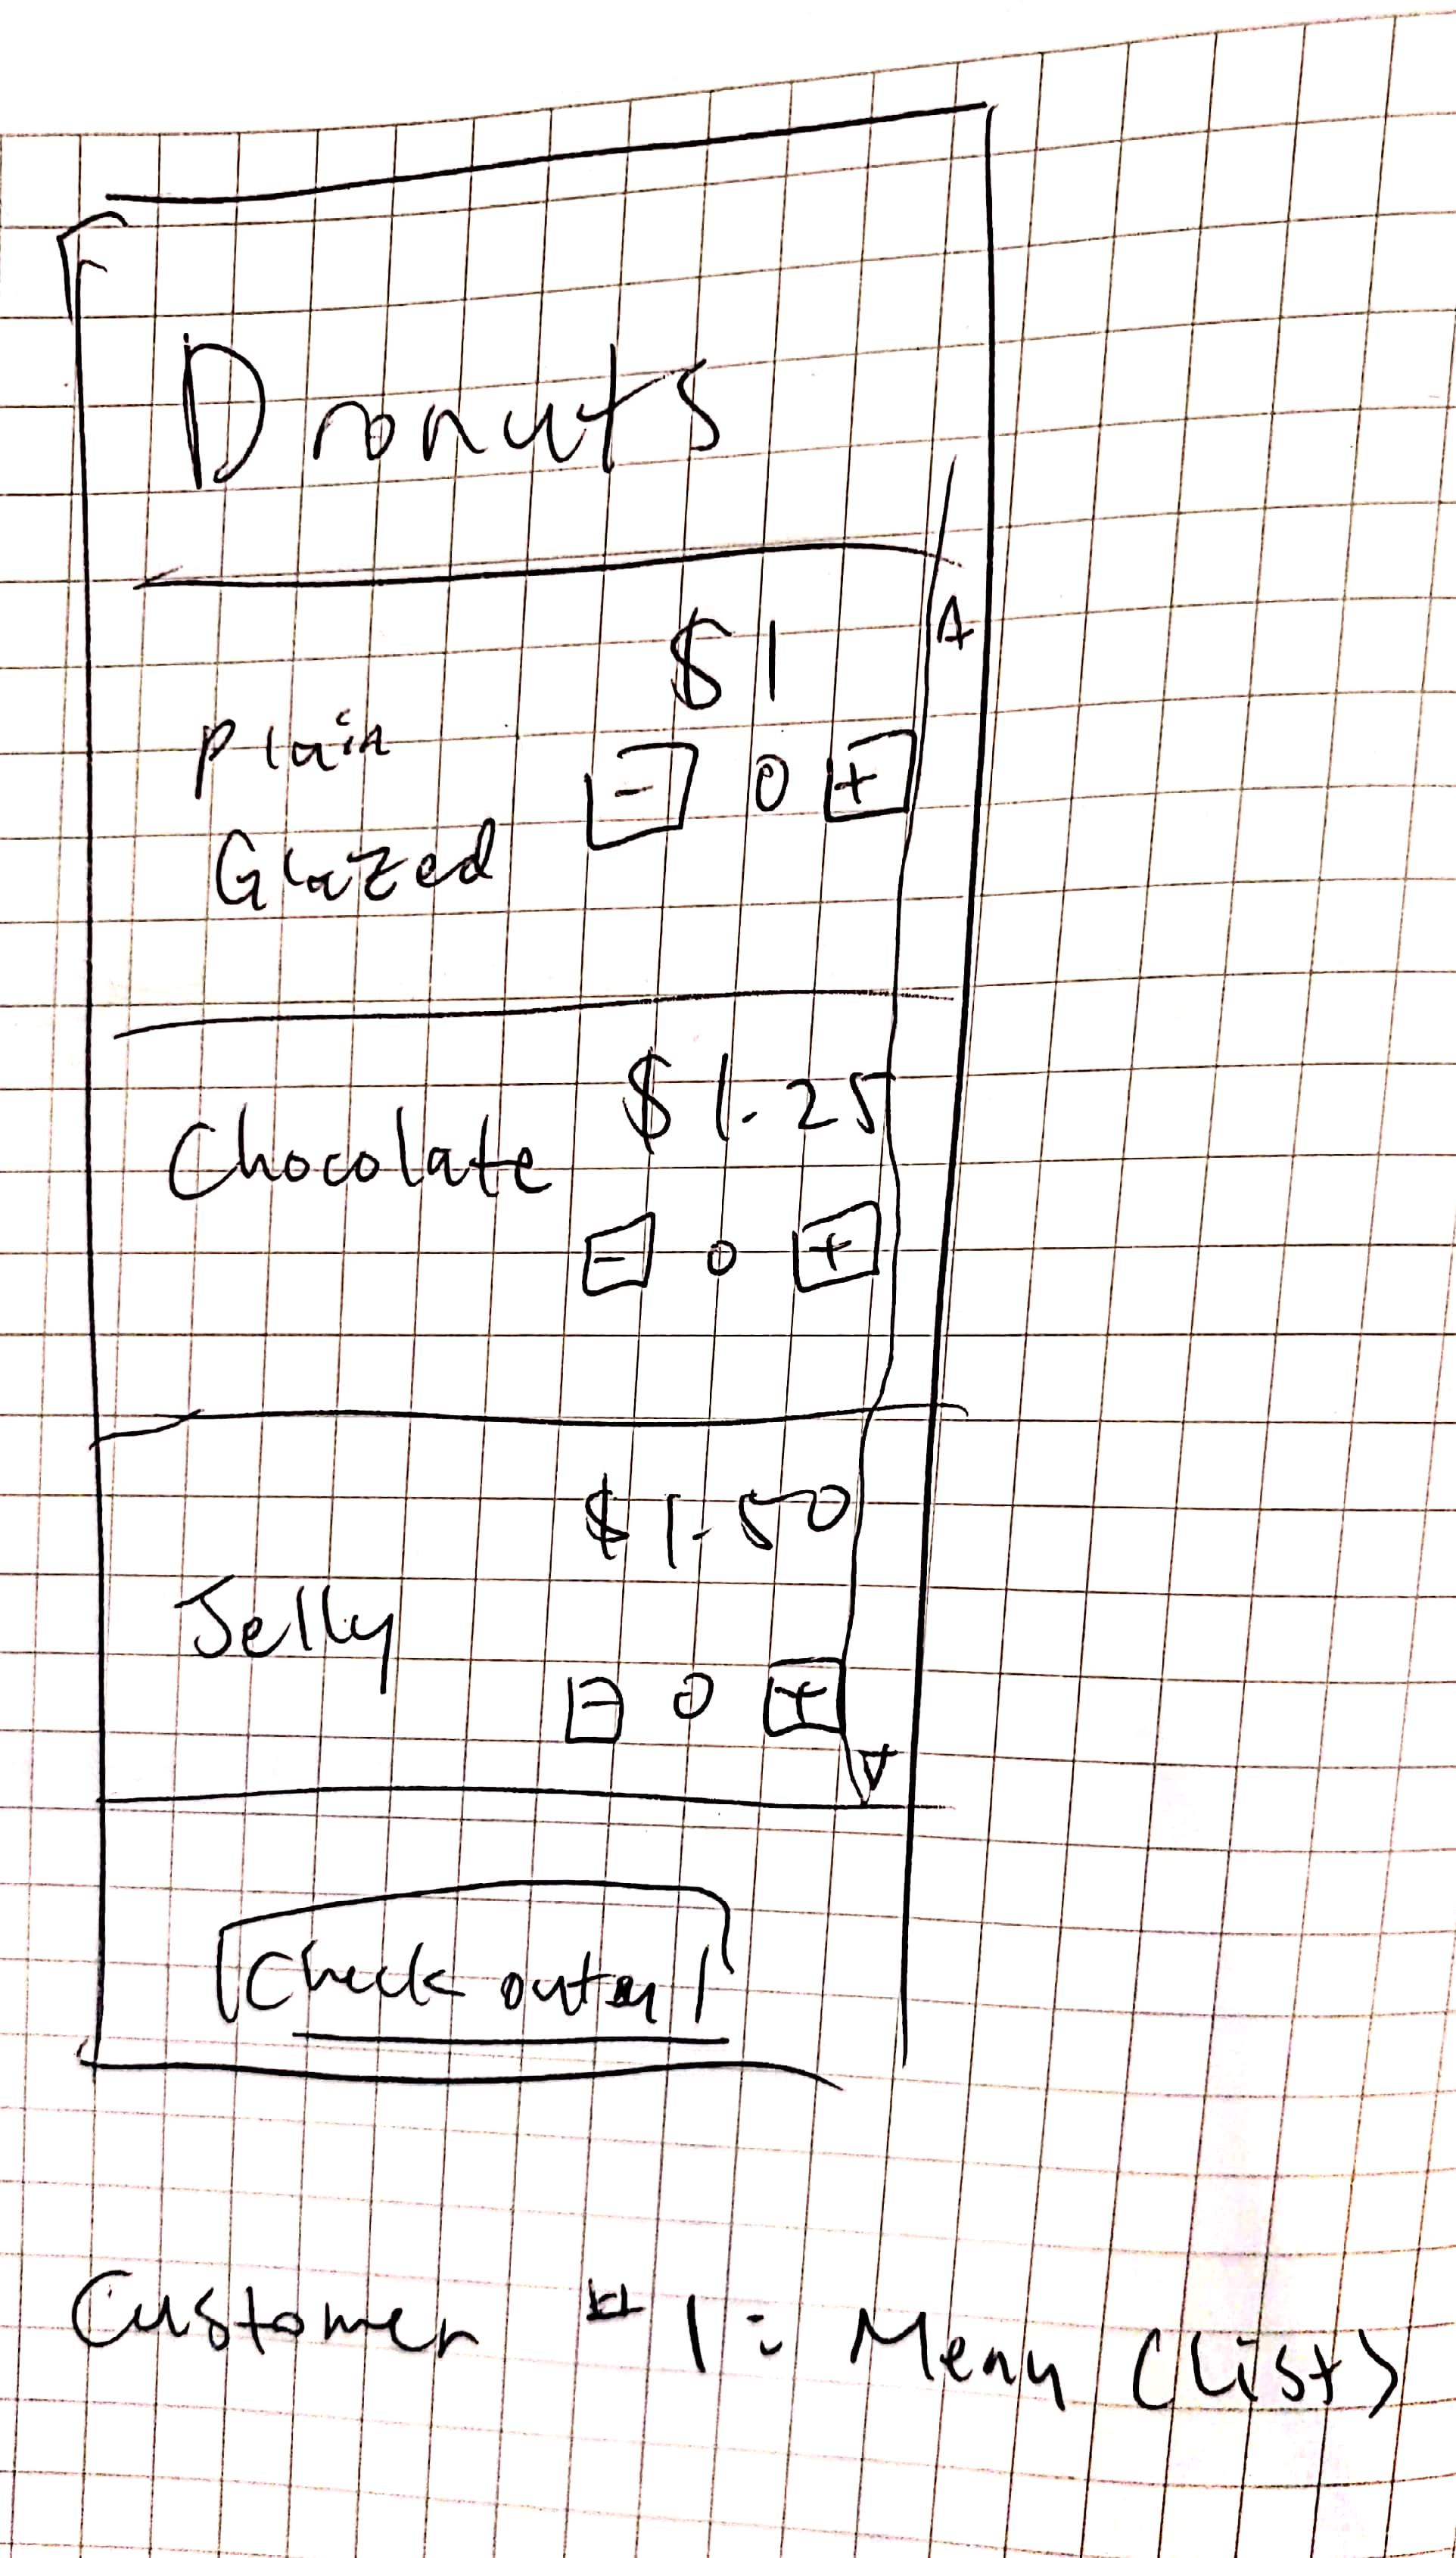 Dronuts
$1
Plain
- 0 +
Glazed
$1.25
Chocolate
- 0 +
$1.50
Jelly
- 0 +
Check
Customer #1: Menu (List)